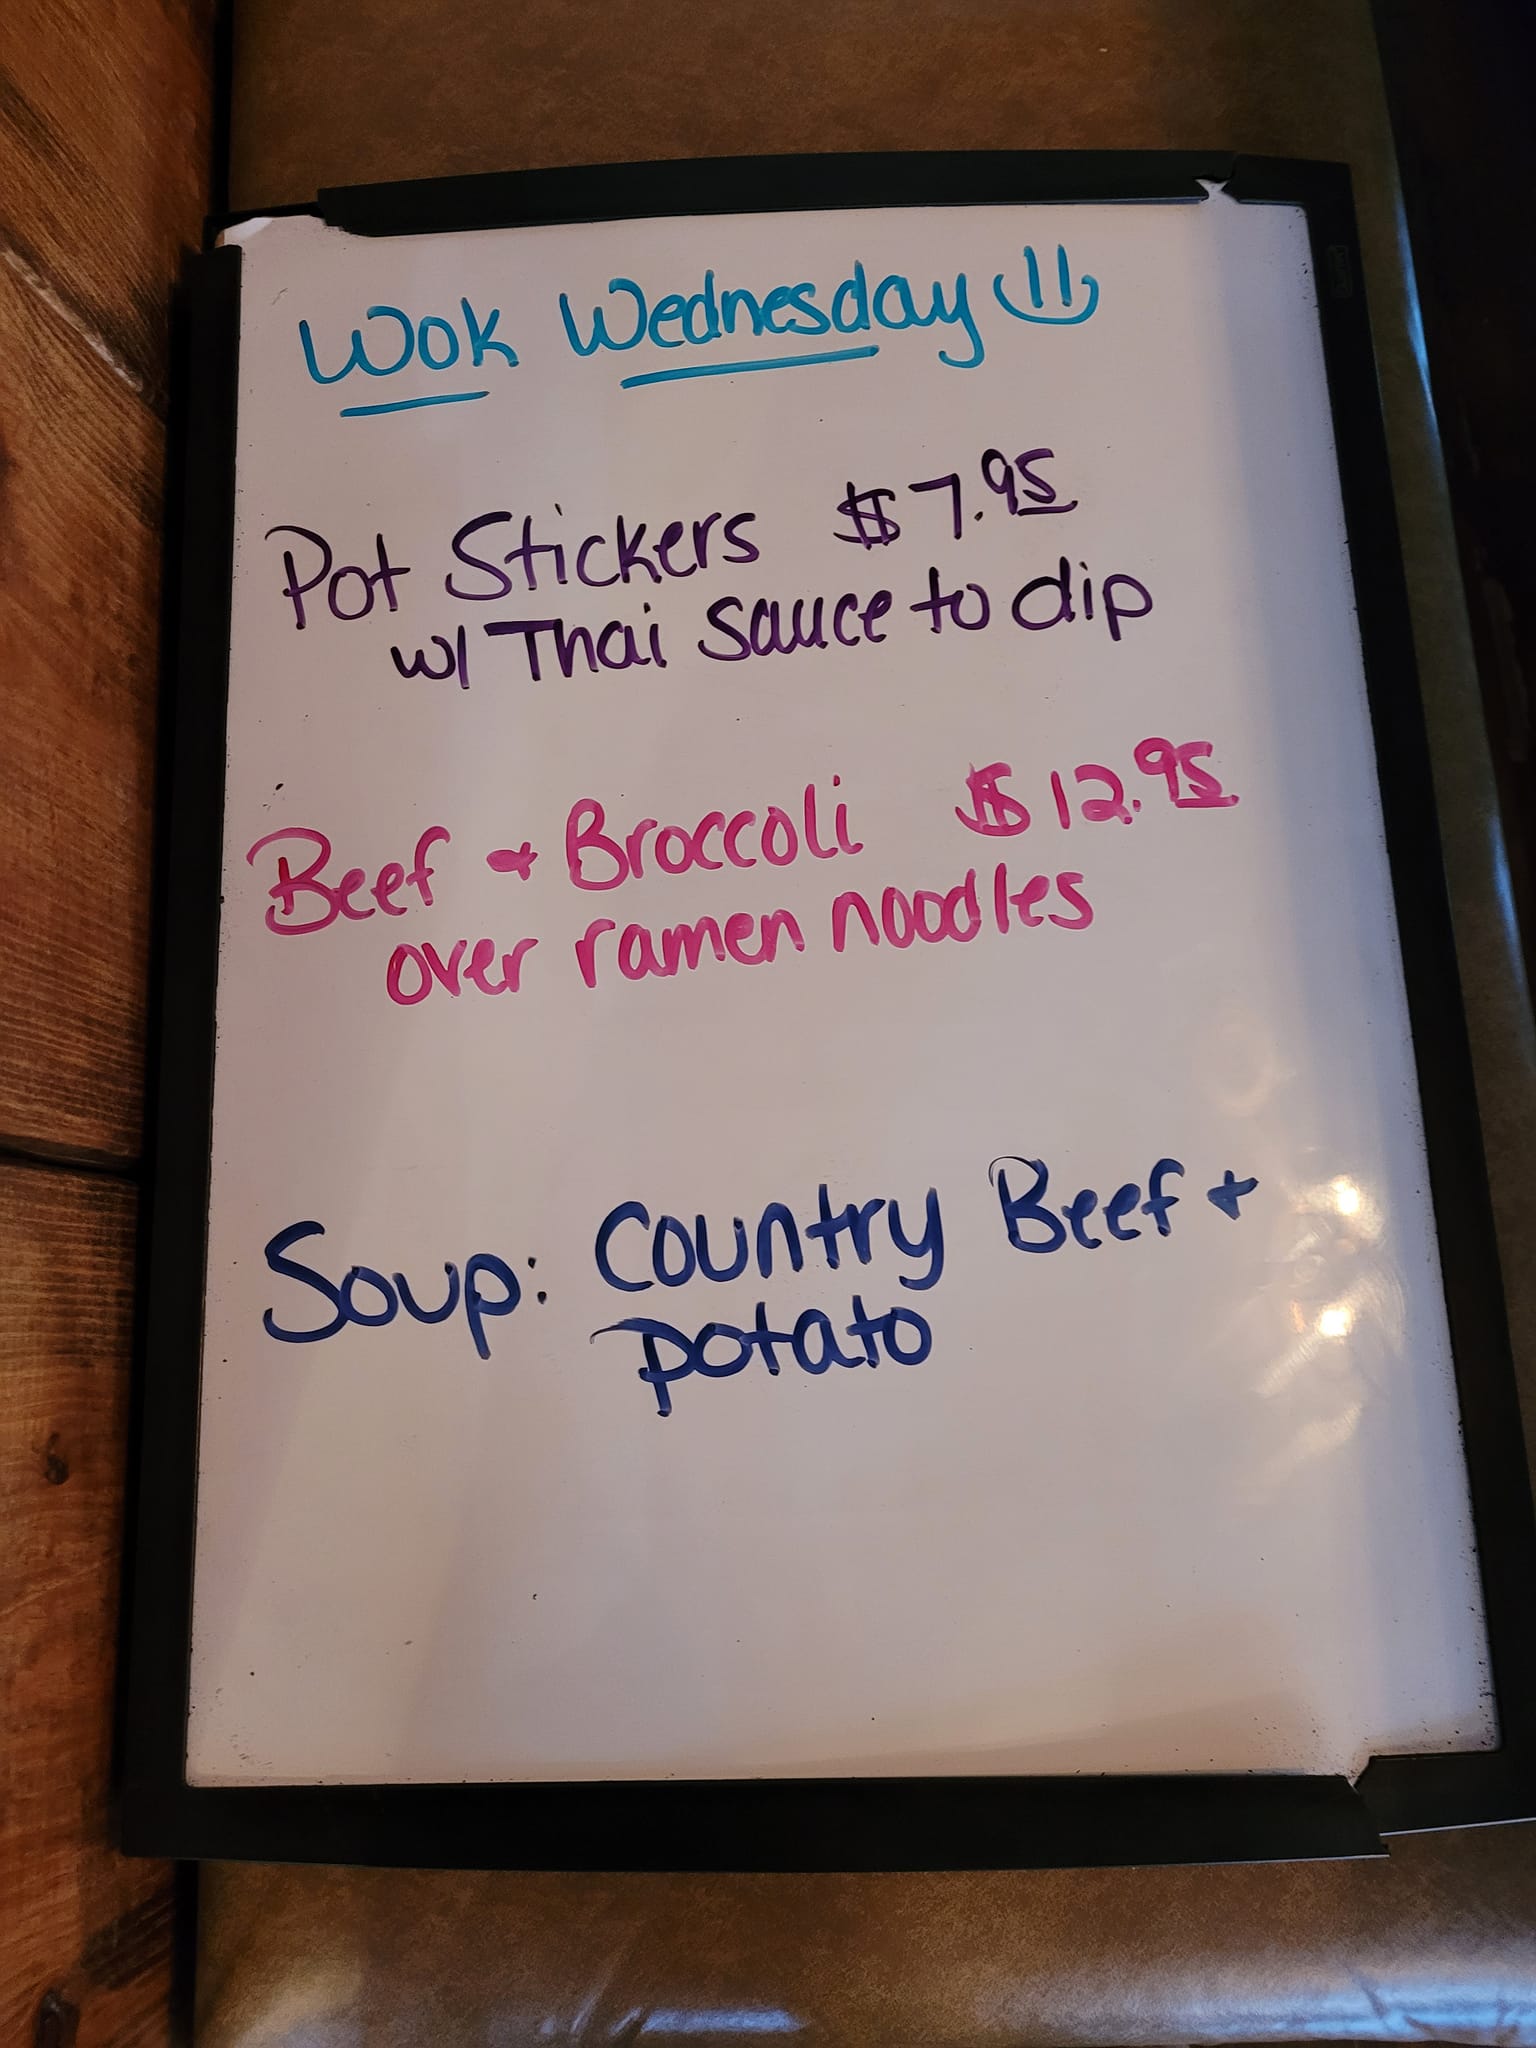 Wok Wednesday
Pot Stickers $7.95
w/ Thai Sauce to dip
Beef & Broccoli $12.95
over ramen noodles
Soup: Country Beef &
potato